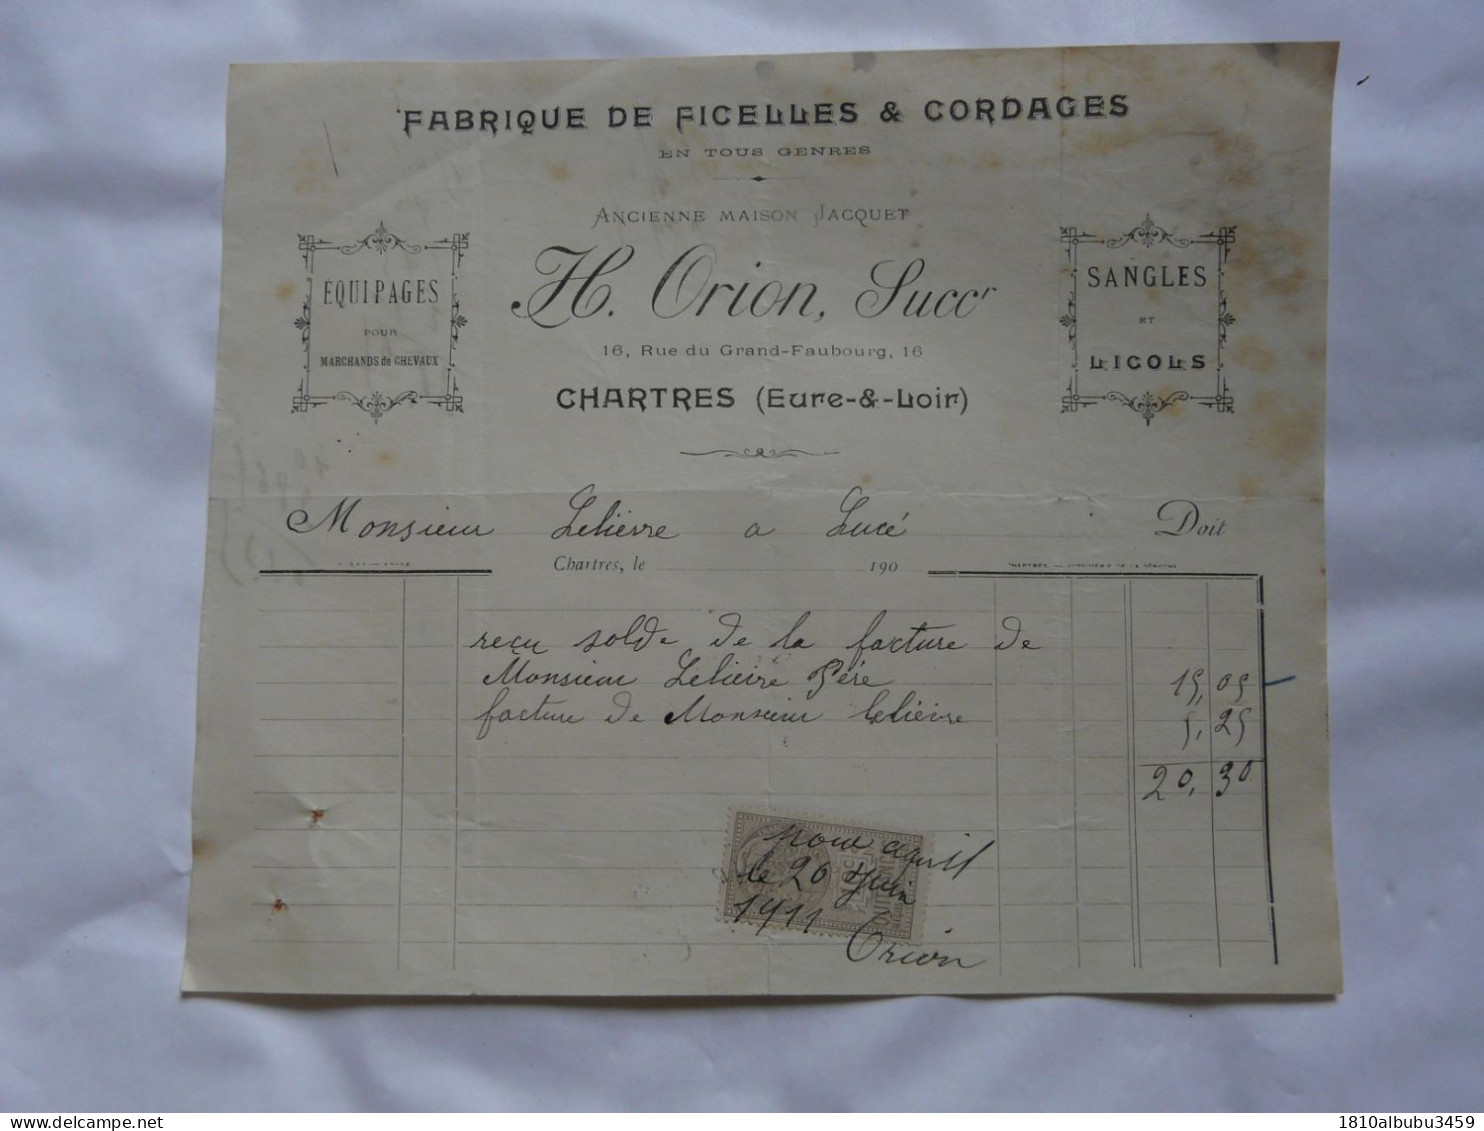 FABRIQUE DE FICELLES & CORDAGES
EN TOUS GENRES
ANCIENNE MAISON JACQUET
H. Orion, Succr
16, Rue du Grand-Faubourg, 16
CHARTRES (Eure-&-Loir)
ÉQUIPAGES
POUR
MARCHANDS de CHEVAUX
SANGLES
ET
LICOLS
Monsieur Lelièvre a Lucé Doit
Chartres, le 190
reçu solde de la facture de
Monsieur Lelièvre Père 15,05
facture de Monsieur Lelièvre 5,25
20,30
pour aquit
le 26 Juin
1911 Orion
1810albubu3459